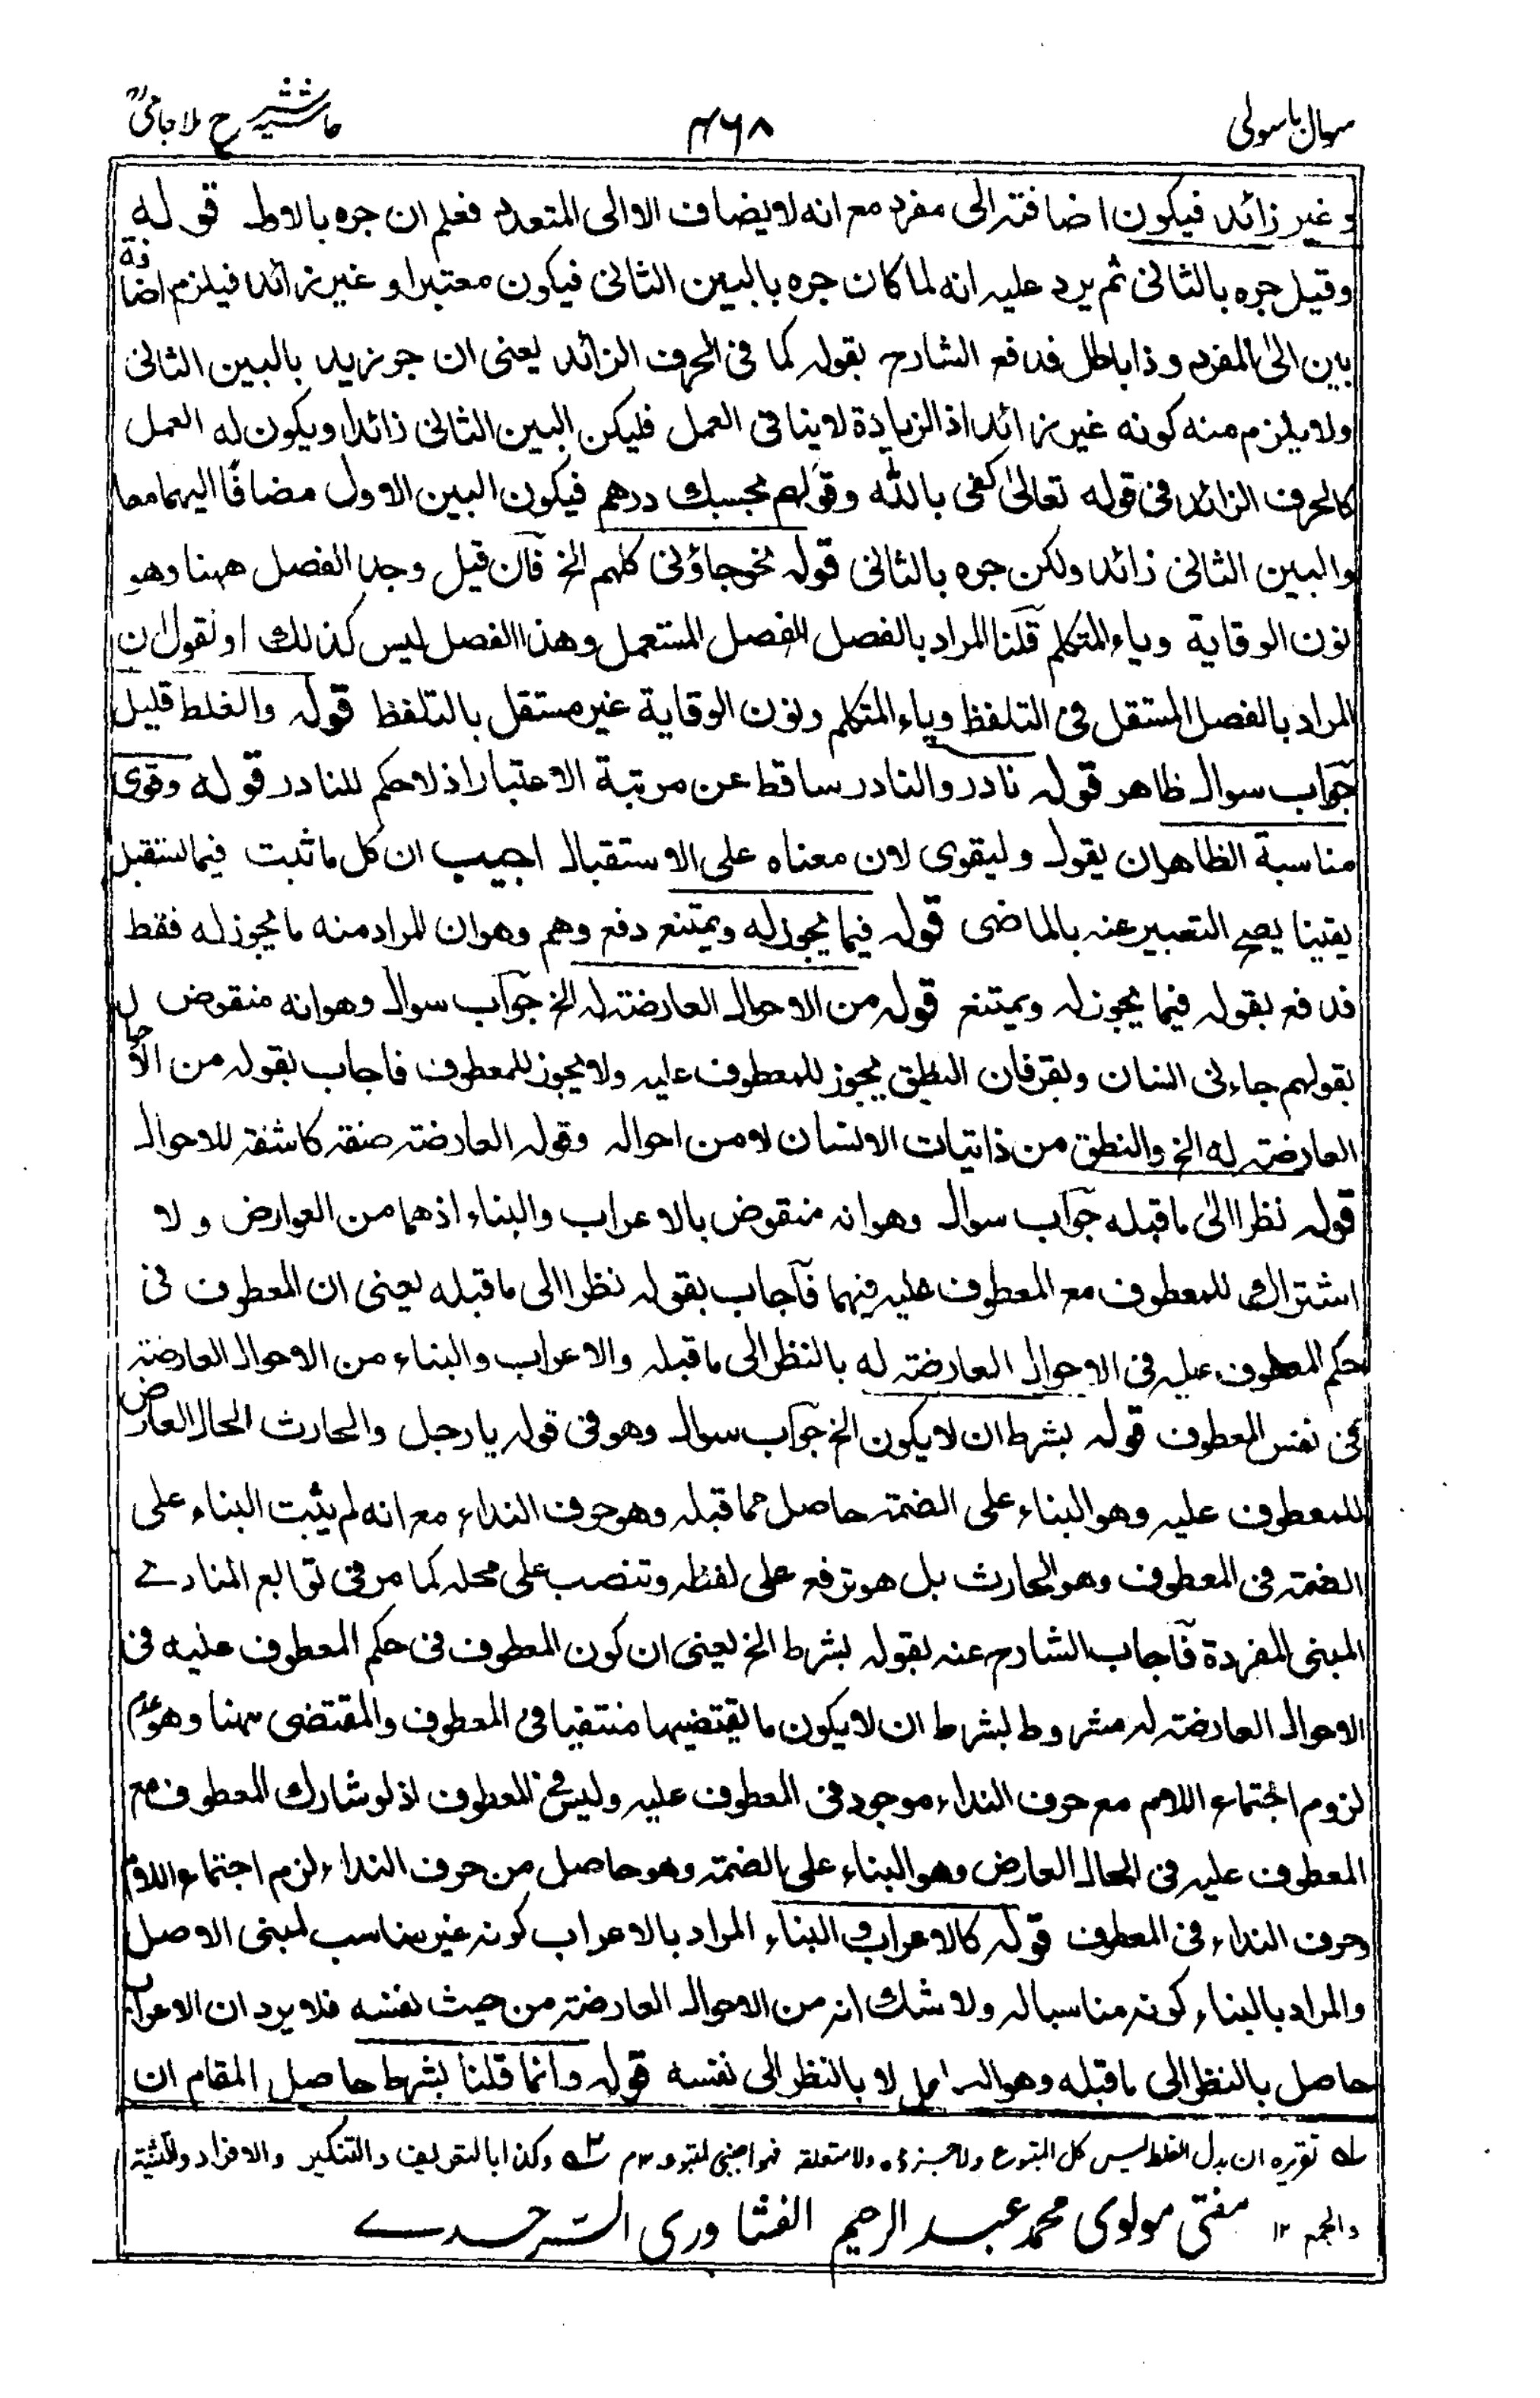 سوال باسولی ۴۶۸ حاشیه شرح ملا جامی
و غیر زائد فیکون اضافته الی مفرد مع انه لا یضاف الا الی المتعدد فعلم ان جره بالاول قوله
وقیل جره بالثانی ثم یرد علیه انه لما کان جره بالبین الثانی فیکون معتبرا و غیر زائد فیلزم اضافة
بین الی المفرد وذا باطل فدفع الشارح بقوله کما فی الحرف الزائد یعنی ان جر زید بالبین الثانی
ولا یلزم منه کونه غیر زائد اذ الزیادة لا ینافی العمل فلیکن البین الثانی زائدا ویکون له العمل
کالحرف الزائد فی قوله تعالیٰ کفی بالله وقولهم بحسبك درهم فیکون البین الاول مضافًا الیهما معا
والبین الثانی زائد ولکن جره بالثانی قوله نحو جاؤنی کلهم الخ فآن قیل وجد الفصل ههنا وهو
نون الوقایة ویاء المتکلم قلنا المراد بالفصل الفصل المستعمل وهذا الفصل لیس کذلك او نقول ان
المراد بالفصل المستقل فی التلفظ ویاء المتکلم ونون الوقایة غیر مستقل بالتلفظ قوله والغلط قلیل
جواب سوال ظاهر قوله نادر والنادر ساقط عن مرتبة الاعتبار اذ لا حکم للنادر قوله وقوی
مناسبة الظاهر ان یقول ولیقوی لان معناه علی الاستقبال اجیب ان کل ما ثبت فیما یستقبل
یقینا یصح التعبیر عنه بالماضی قوله فیما یجوز له ویمتنع دفع وهم وهو ان المراد منه ما یجوز له فقط
فدفع بقوله فیما یجوز له ویمتنع قوله من الاحوال العارضة له الخ جوآب سوال وهو انه منقوض
بقولهم جاءنی انسان وبقر فان النطق یجوز للمعطوف علیه ولا یجوز للمعطوف فاجاب بقوله من الاحوال
العارضة له الخ والنطق من ذاتیات الانسان لا من احواله وقوله العارضة صفة کاشفة للاحوال
قوله نظرا الی ماقبله جوآب سوال وهو انه منقوض بالاعراب والبناء اذ هما من العوارض ولا
اشتراك للمعطوف مع المعطوف علیه فیهما فآجاب بقوله نظرا الی ماقبله یعنی ان المعطوف فی
حکم المعطوف علیه فی الاحوال العارضة له بالنظر الی ماقبله والاعراب والبناء من الاحوال العارضة
عن نفس المعطوف قوله بشرط ان لا یکون الخ جوآب سوال وهو فی قوله یا رجل والحارث الحال العارض
للمعطوف علیه وهو البناء علی الضمة حاصل مما قبله وهو حرف النداء مع انه لم یثبت البناء علی
الضمة فی المعطوف وهو الحارث بل هو ترفع علی لفظه وتنصب علی محله کما مر فی توابع المنادے
المبنی المفردة فآجاب الشارح عنه بقوله بشرط الخ یعنی ان کون المعطوف فی حکم المعطوف علیه فی
الاحوال العارضة له مشروط بشرط ان لا یکون ما یقتضیها منتفیا فی المعطوف والمقتضی ههنا وهو عدم
لزوم اجتماع اللام مع حرف النداء موجود فی المعطوف علیه ولیس فی المعطوف اذ لو شارك المعطوف مع
المعطوف علیه فی الحال العارض وهو البناء علی الضمة وهو حاصل من حرف النداء لزم اجتماع اللام
وحرف النداء فی المعطوف قوله کالاعراب والبناء المراد بالاعراب کونه غیر مناسب لمبنی الاصل
والمراد بالبناء کونه مناسبا له ولا شك انه من الاحوال العارضة من حیث نفسه فلا یرد ان الاعراب
حاصل بالنظر الی ماقبله وهو العامل لا بالنظر الی نفسه قوله وانما قلنا بشرط حاصل المقام ان
له تقریره ان بدل الغلط لیس کل المتبوع ولا جزءه ولا متعلقه فهو اجنبی لمتبوعه ۱۲م ۲ه وکذا بالتعریف والتنکیر والافراد والتثنیة
والجمع ۱۲ مفتی مولوی محمد عبد الرحیم الفشاوری السرحدے